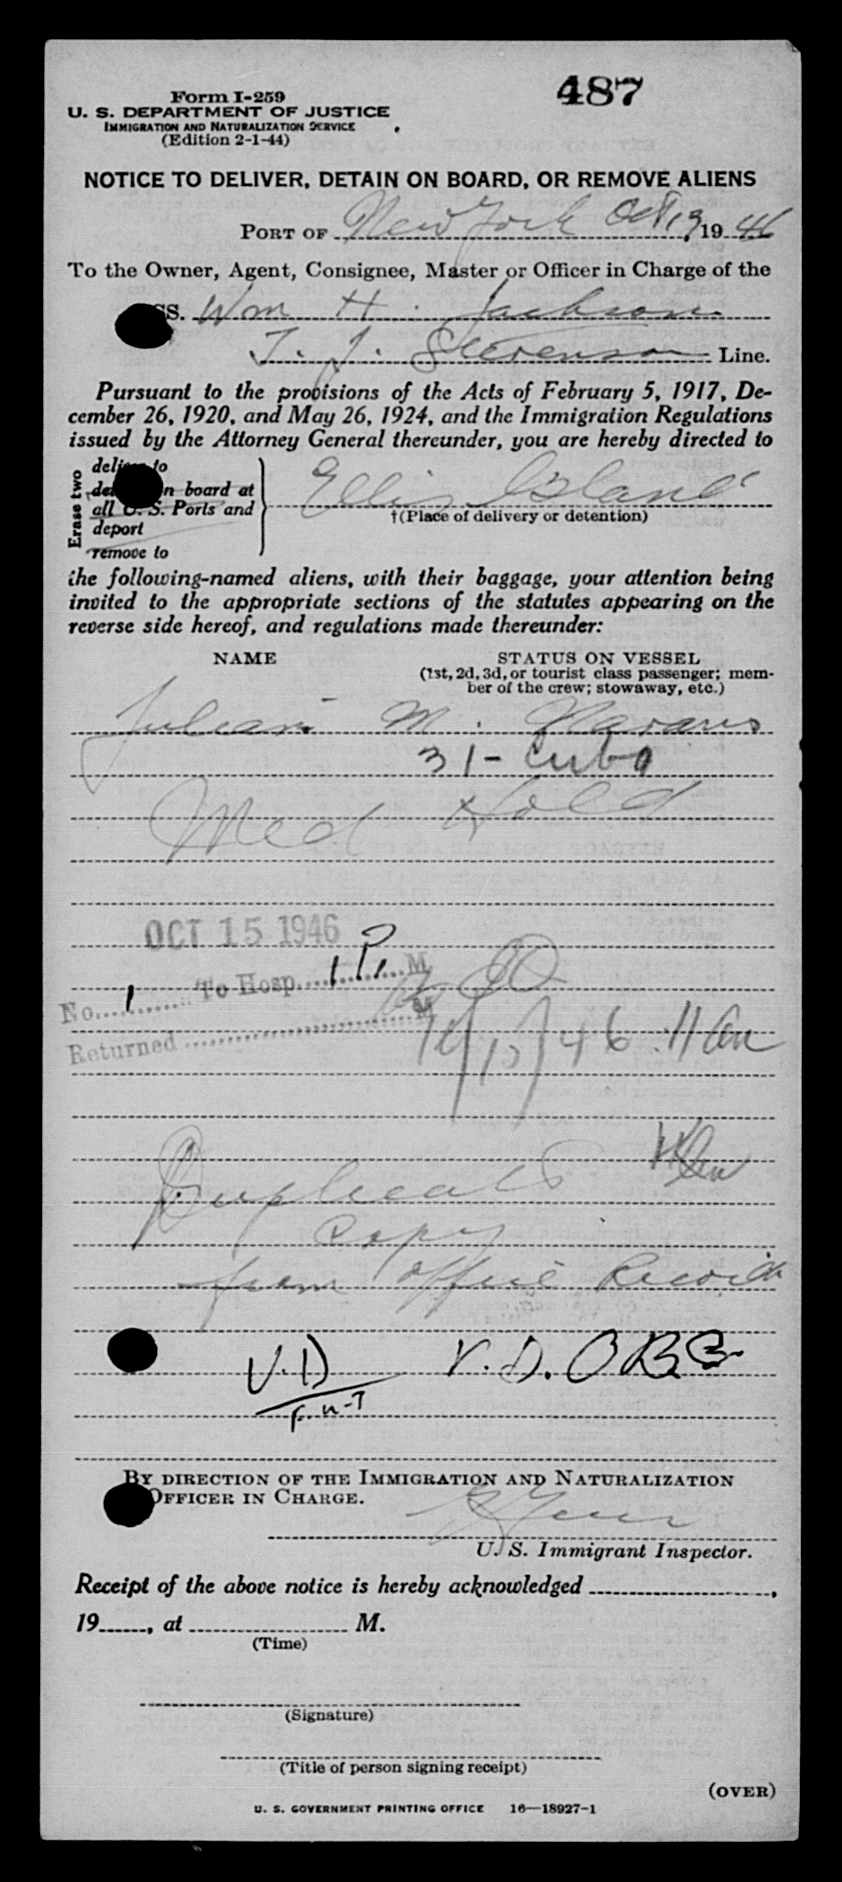 487
Form I-259
U. S. DEPARTMENT OF JUSTICE
IMMIGRATION AND NATURALIZATION SERVICE
(Edition 2-1-44)
NOTICE TO DELIVER, DETAIN ON BOARD, OR REMOVE ALIENS
PORT OF New York Oct 13, 1946
To the Owner, Agent, Consignee, Master or Officer in Charge of the
SS. Wm H. Jackson
T. J. Stevenson Line.
Pursuant to the provisions of the Acts of February 5, 1917, De-
cember 26, 1920, and May 26, 1924, and the Immigration Regulations
issued by the Attorney General thereunder, you are hereby directed to
Erase two
deliver to
detain on board at
all U. S. Ports and
deport
remove to
Ellis Island
†(Place of delivery or detention)
the following-named aliens, with their baggage, your attention being
invited to the appropriate sections of the statutes appearing on the
reverse side hereof, and regulations made thereunder:
NAME STATUS ON VESSEL
(1st, 2d, 3d, or tourist class passenger; mem-
ber of the crew; stowaway, etc.)
Julian M.
31 - Cuba
Med Hold
OCT 15 1946
No. 1 To Hosp. 1 P. M
Returned M
46 11 am
Duplicate
Copy
from office Records
V.D V. D. OBS
By direction of the Immigration and Naturalization
Officer in Charge.
U. S. Immigrant Inspector.
Receipt of the above notice is hereby acknowledged ,
19 , at M.
(Time)
(Signature)
(Title of person signing receipt)
(OVER)
U. S. GOVERNMENT PRINTING OFFICE 16—18927-1